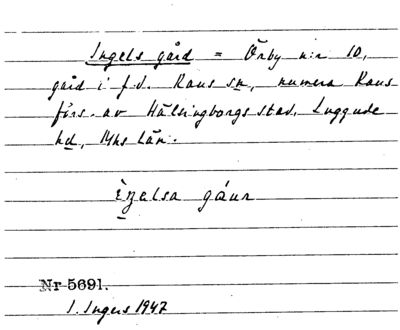 Ingels gård = Örby n:r 10,
gård i f.d. Raus sn, numera Raus
förs. av Hälsingborgs stad, Luggude
hd, Mhs län.
èŋelsa gáur
Nr 5691.
I. Ingers 1947